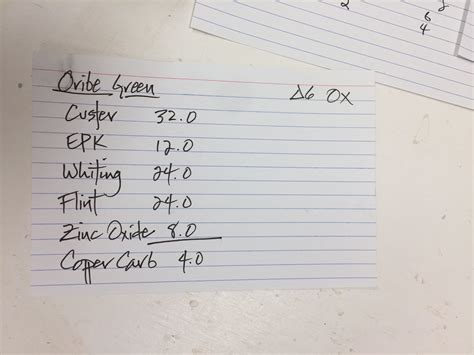 Oribe Green Δ6 OX
Custer 32.0
EPK 12.0
Whiting 24.0
Flint 24.0
Zinc Oxide 8.0
Copper Carb 4.0
6
4